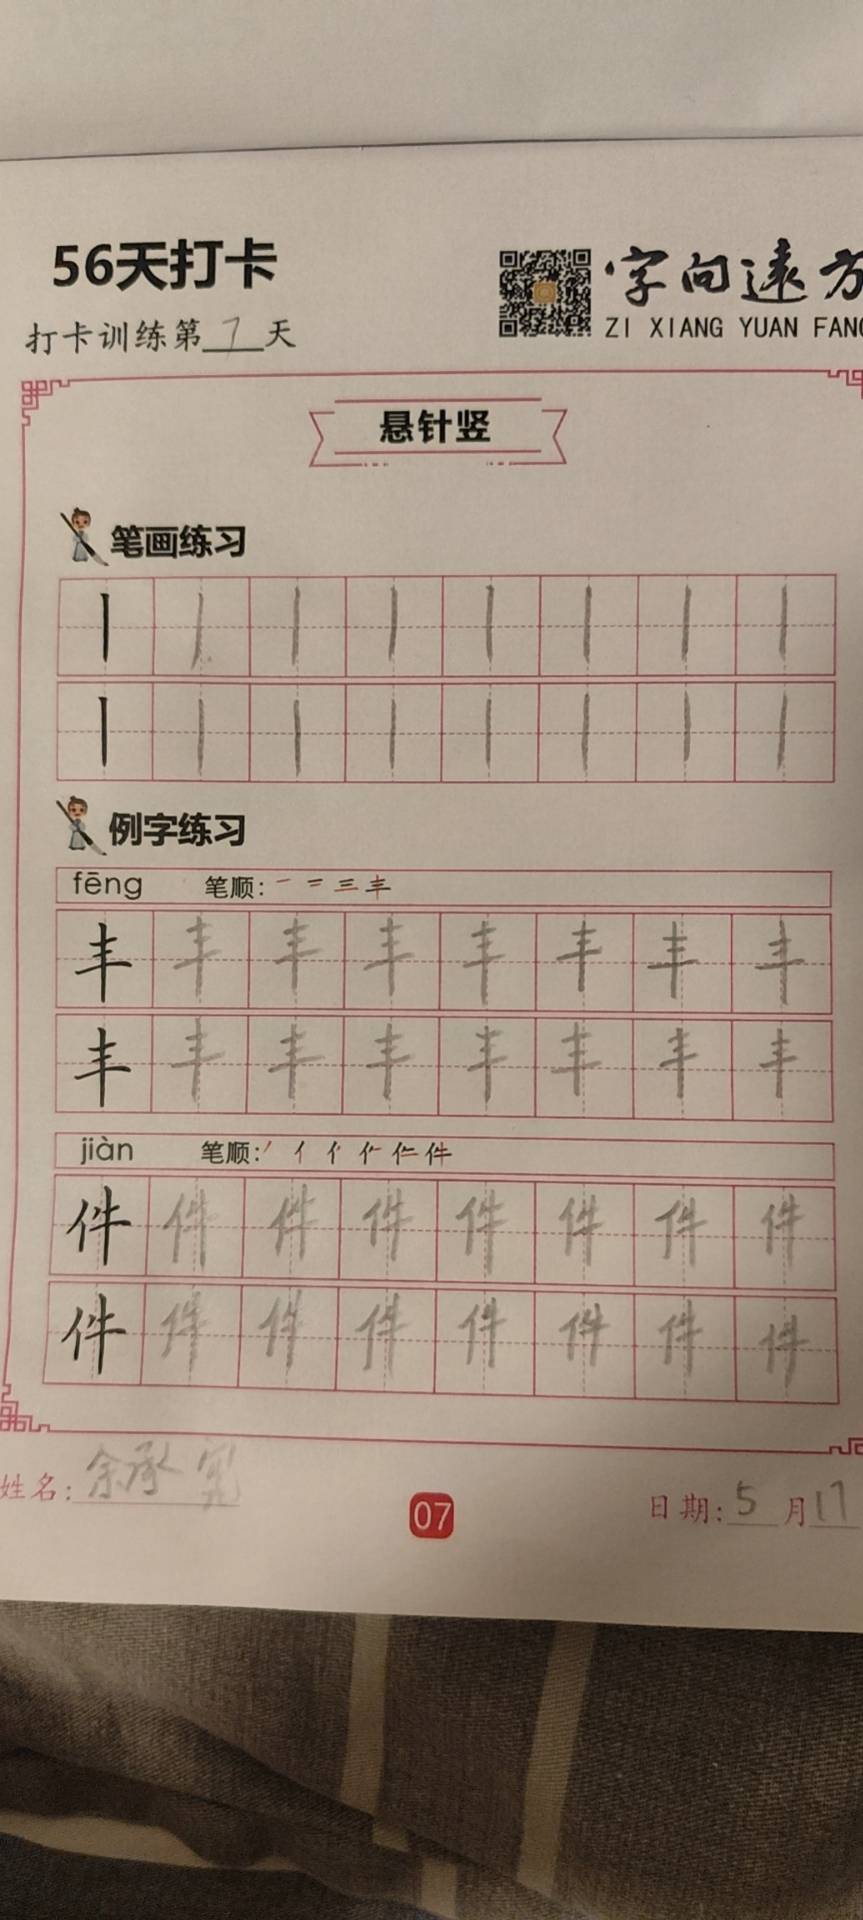 56天打卡
字向远方
ZI XIANG YUAN FANG
打卡训练第7天
悬针竖
笔画练习
丨丨丨丨丨丨丨丨
丨丨丨丨丨丨丨丨
例字练习
fēng 笔顺: 一 二 三 丰
丰丰丰丰丰丰丰丰
丰丰丰丰丰丰丰丰
jiàn 笔顺: 件
件件件件件件件件
件件件件件件件件
姓名: 余承宪
07
日期: 5月17